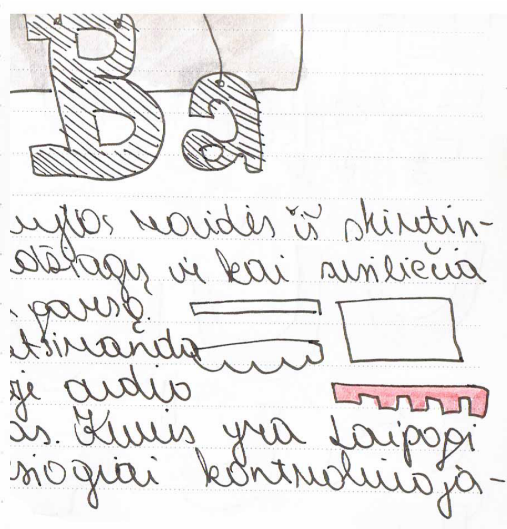 Ba
raidės iš skirtin-
ir kai susiliečia
garsą.
atsiranda
audio
as. Kuris yra taipogi
siogiai kontroliuoja-